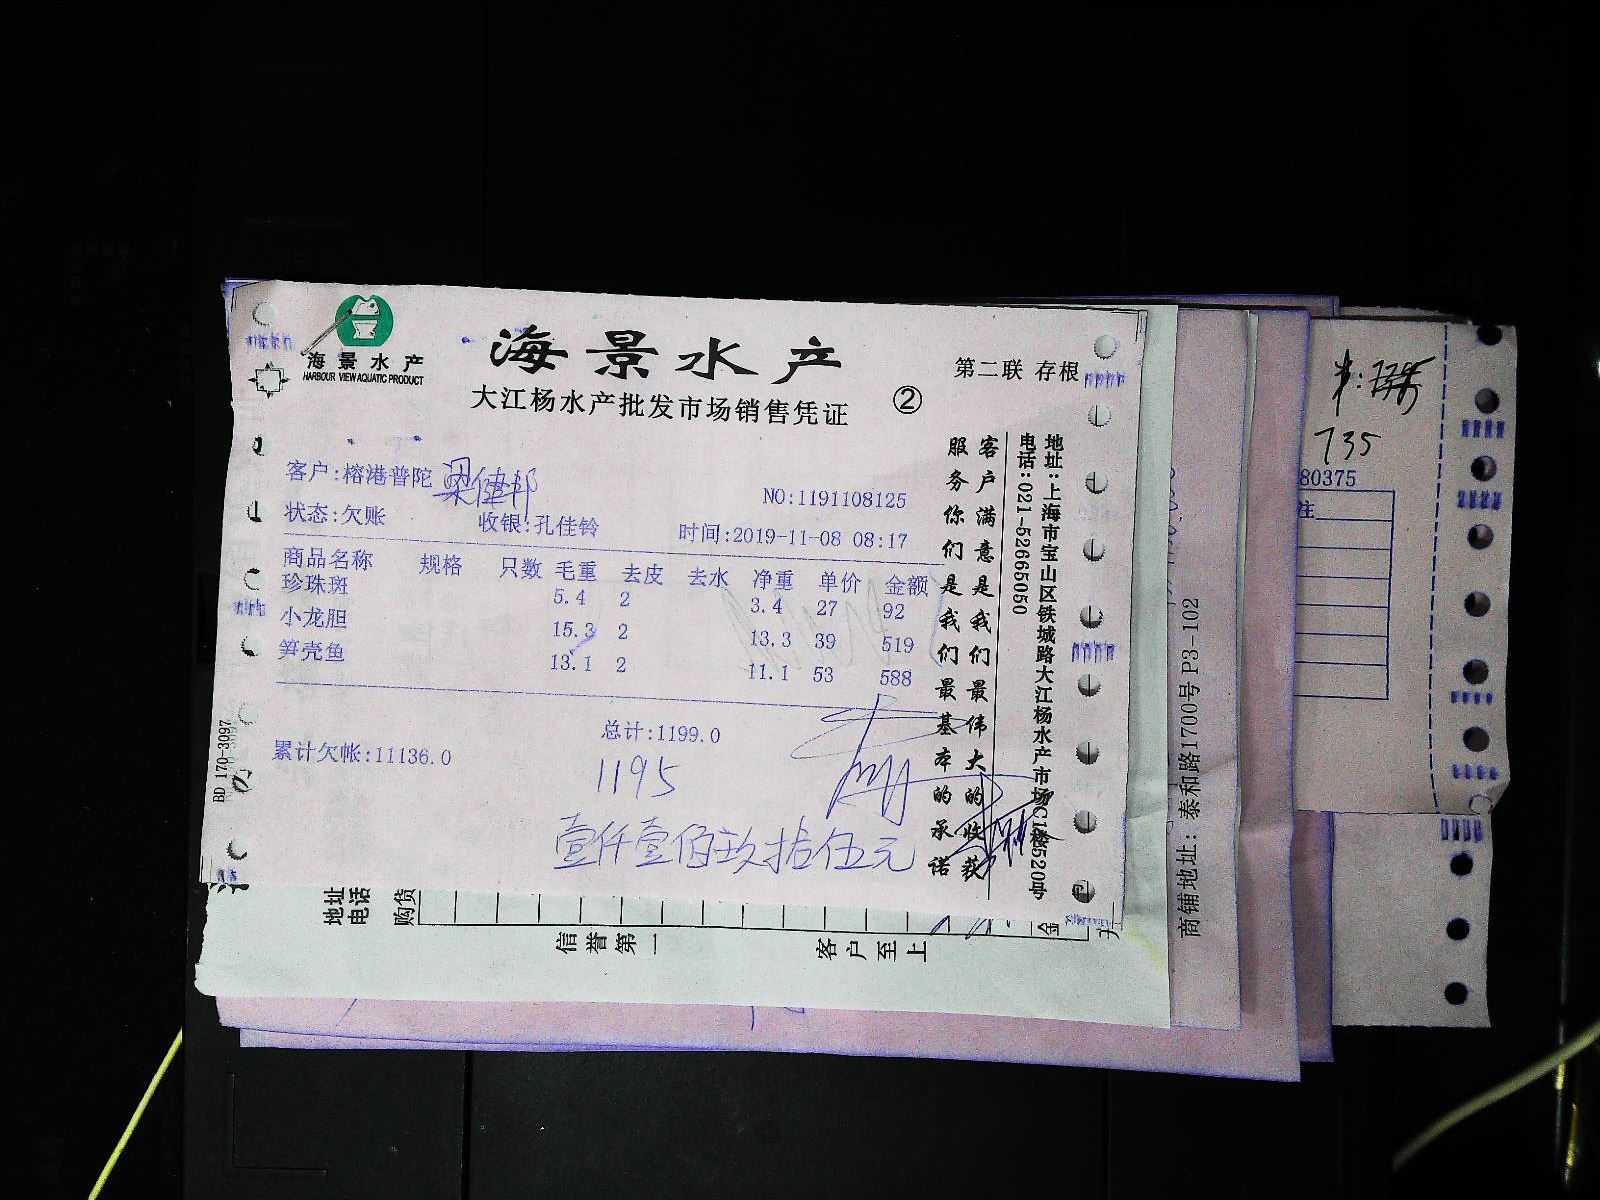 海景水产
HARBOUR VIEW AQUATIC PRODUCT
海景水产
大江杨水产批发市场销售凭证
②
第二联 存根
客户:榕港普陀 梁健邦
NO:1191108125
状态:欠账 收银:孔佳铃 时间:2019-11-08 08:17
商品名称 规格 只数 毛重 去皮 去水 净重 单价 金额
珍珠斑 5.4 2 3.4 27 92
小龙胆 15.3 2 13.3 39 519
笋壳鱼 13.1 2 11.1 53 588
总计:1199.0
累计欠帐:11136.0
1195
壹仟壹佰玖拾伍元
客户满意是我们最伟大的收获
服务你们是我们最基本的承诺
地址:上海市宝山区铁城路大江杨水产市场C1楼520号
电话:021-52665050
BD 170-3097
地址
电话
购货
信誉第一
客户至上
金
商铺地址: 泰和路1700号 P3-102
735
80375
注